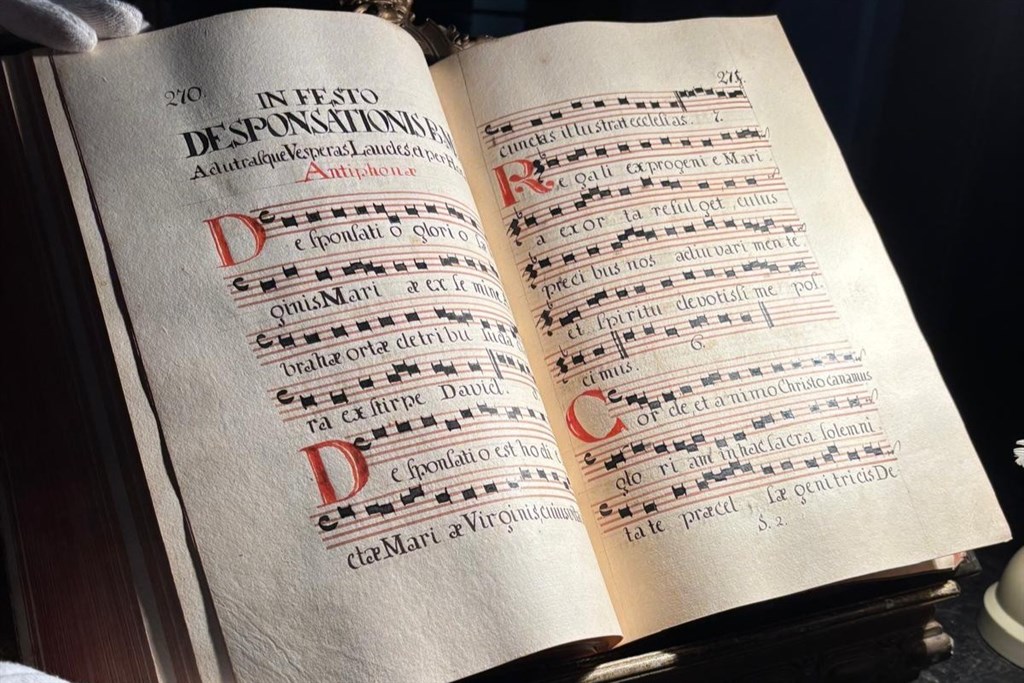 270.
IN FESTO
DESPONSATIONIS B.
Ad utrasque Vesperas, Laudes, et per
Antiphonæ
De sponsati o glori o
ginis Mari æ ex se mine
brahæ ortæ de tribu Iuda
ra ex stirpe David.
De sponsatio est hodi e
ctæ Mari æ Virginis, cuius
271.
cunctas illustrat ecclesias. 7.
Re gali ex progeni e Mari
a ex or ta reful get, cuius
preci bus nos adiuvari men te
et spiritu devotissi me pos.
cimus. 6.
Cor de et animo Christo canamus
glo ri am in hac sacra solemni
ta te præcel sæ genitricis De
S. 2.